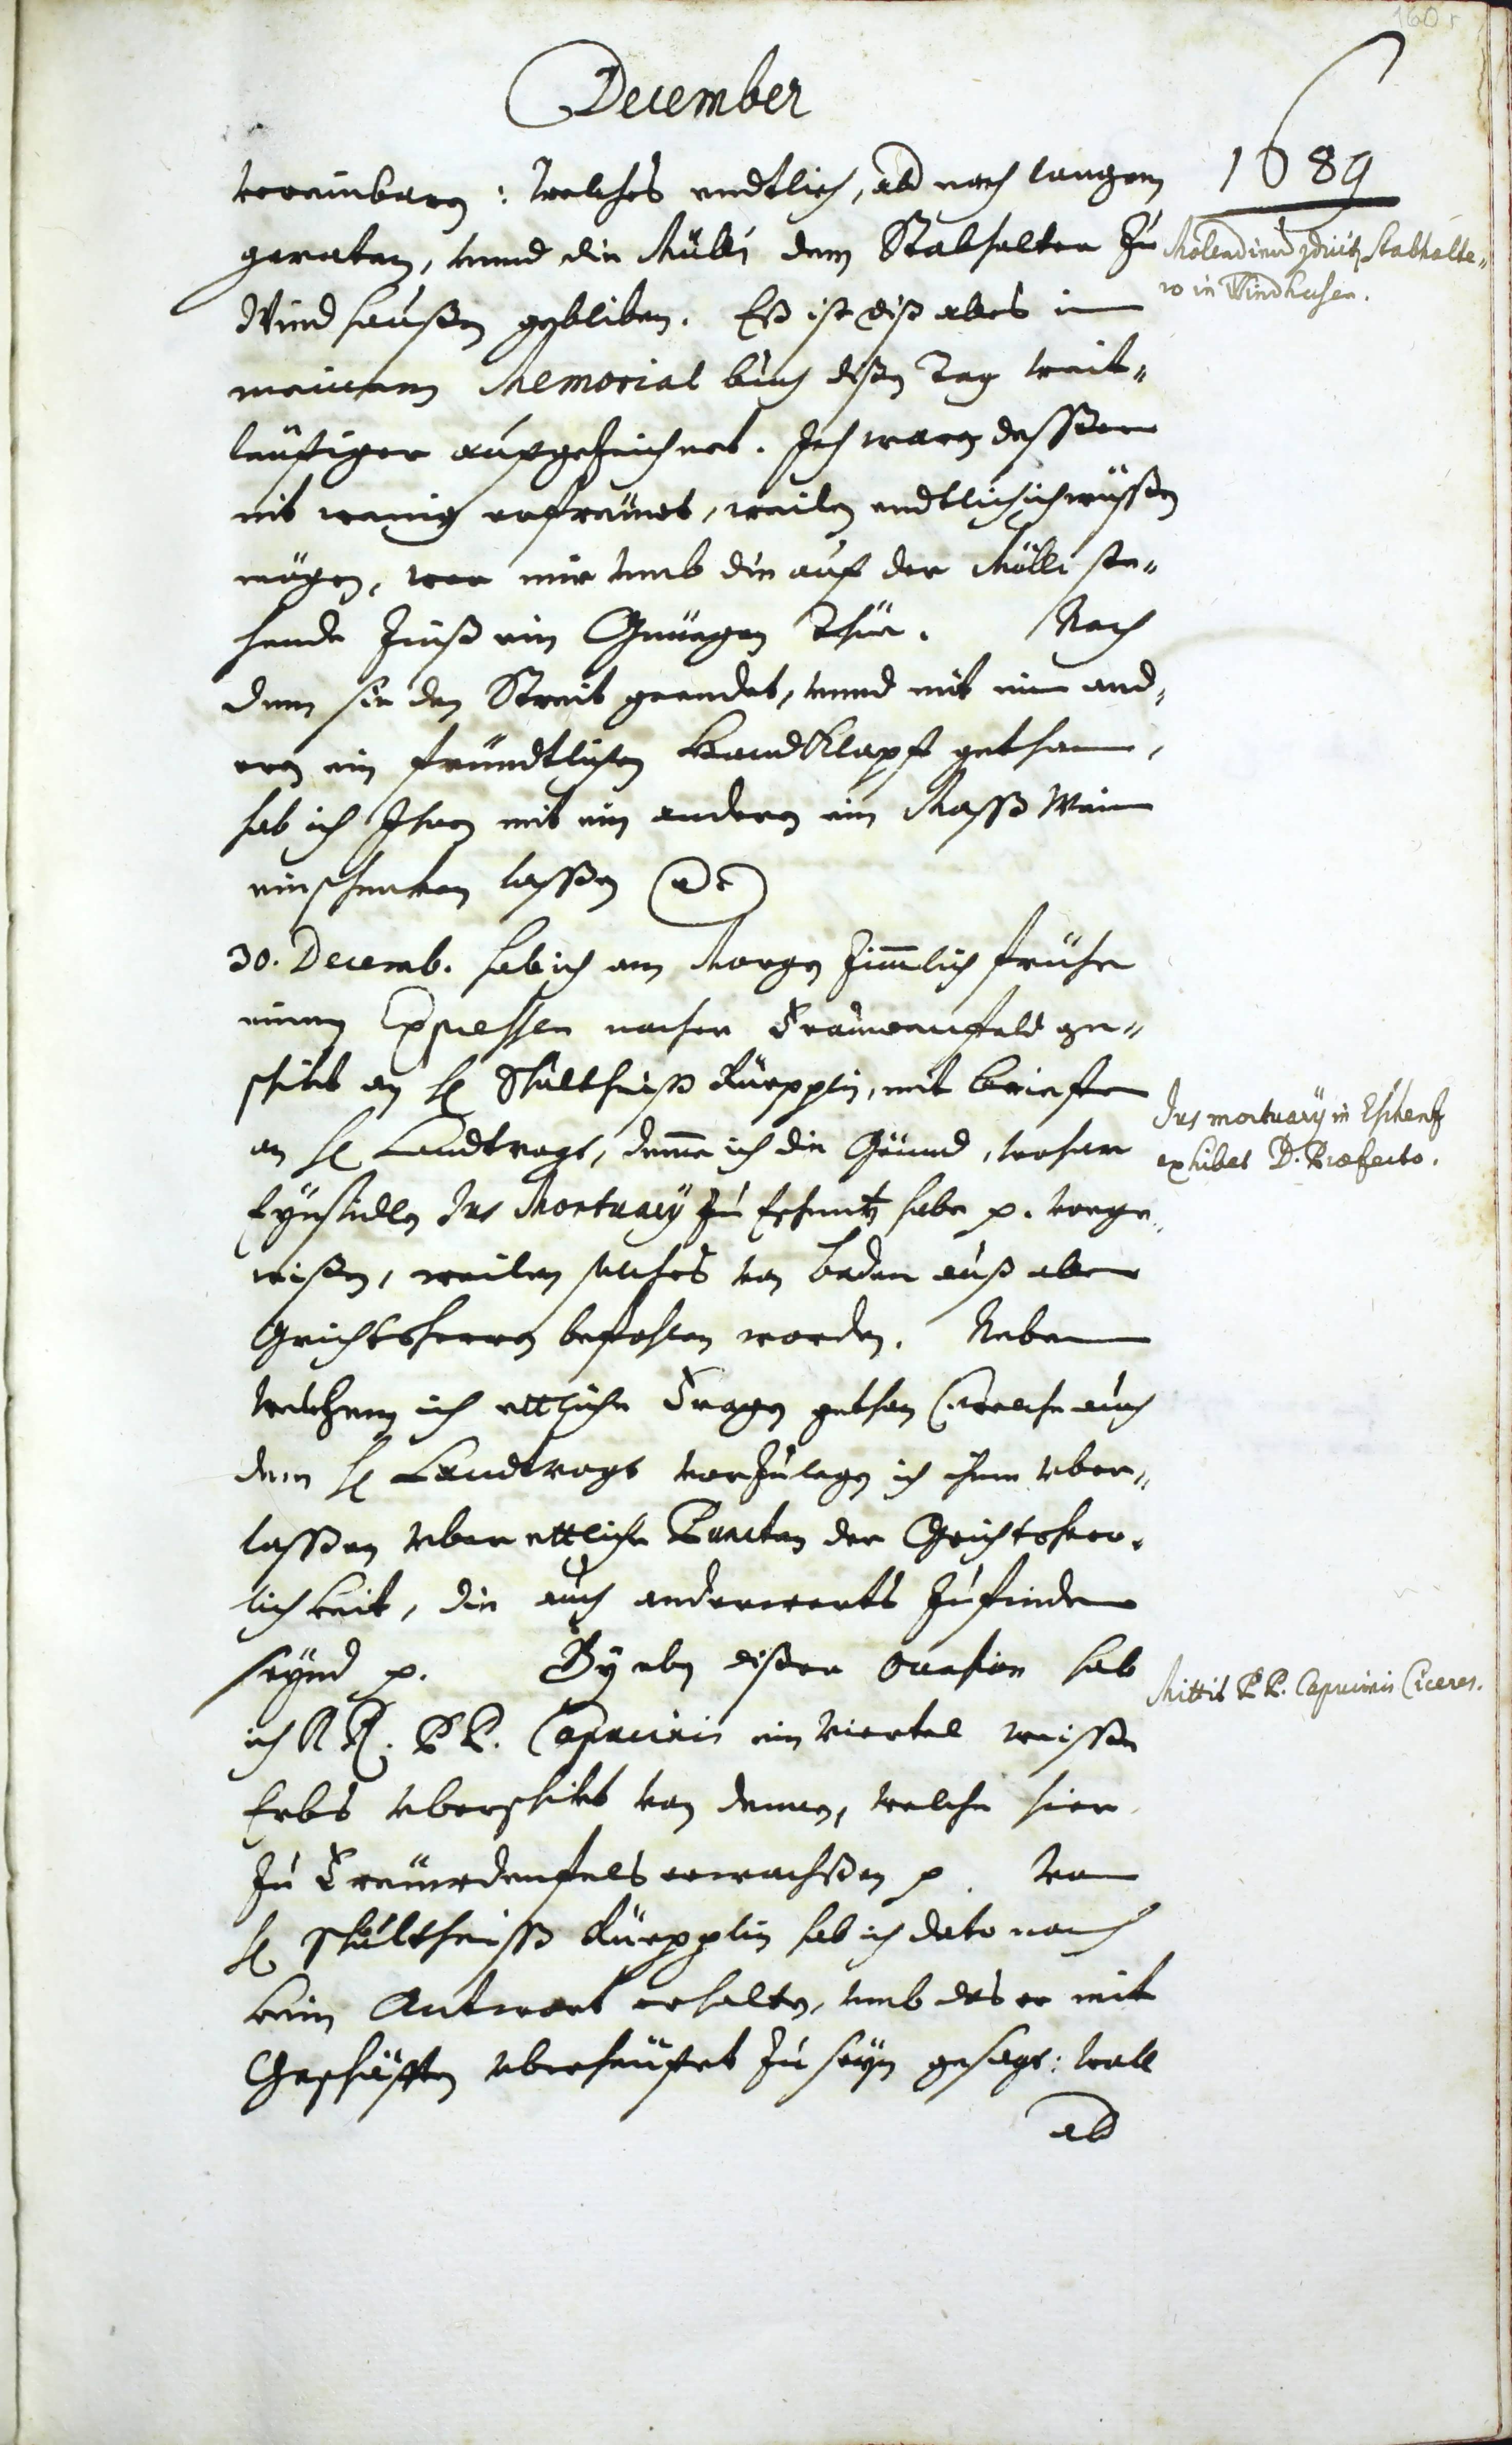 160 r
December
1689
vereinbaren: Welches endtlich, aber nach langem
geraten, unnd die Mülli dem Stabhalter zu
Windhaußen gebliben. Eß ist diß alles in
meinem Memorial buch dißen Tag weit-
läuffiger auffgezeichnet. Ich waren dessßen
nit wenig erfreüwet, weilen endtlich ich wüssßen
mögen, wer mir umb die auf der Mülli ste-
hende Zinß ein Genüegen thüe. Nach
dem sie den Streit geendet, unnd mit ein and-
eren ein fründtlichen Handklapf gethann,
hab ich Ihnen mit ein anderen ein Massß Wein
einschencken lassßen etc.
Molendinum Stabhalte-
ro in Windhusen.
30. Decemb. hab ich am Morgen zimmlich früehe
einen Expressen nacher Frauwenfeld ge-
schikt an H. Schultheiß Rüepplin, mit briefen
an H. Landtvogt, deme ich die Gründ, woher
Eynsidlen Jus Mortuarÿ zu Eschentz habe p. vorge-
wißen, weilen solches von Baden auß allen
Grichtsherren befohlen worden. Neben
welchem ich ettliche Fragen gethan (welche auch
dem H. Landtvogt vorzulegen ich ihme über-
lassßen über ettliche Puncten der Grichtsherr-
lichkeit, die auch anderwerts zu finden
seynd p. By eben dißer occasion hab
ich RR. PP. Capucinis ein Viertel weissße
Erbs überschikt von denen, welche hier
zu Freüwdenfels erwachßen p. Von
H. Schultheissß Rüepplin hab ich dato noch
kein Antwort erhalten, umb das er mit
Geschäfften überheüfet zu seyn gesagt: Woll
Jus mortuarÿ in Eschentz
exhibet D. Præfecto.
Mittit PP. Capucinis Ciceres.
aber